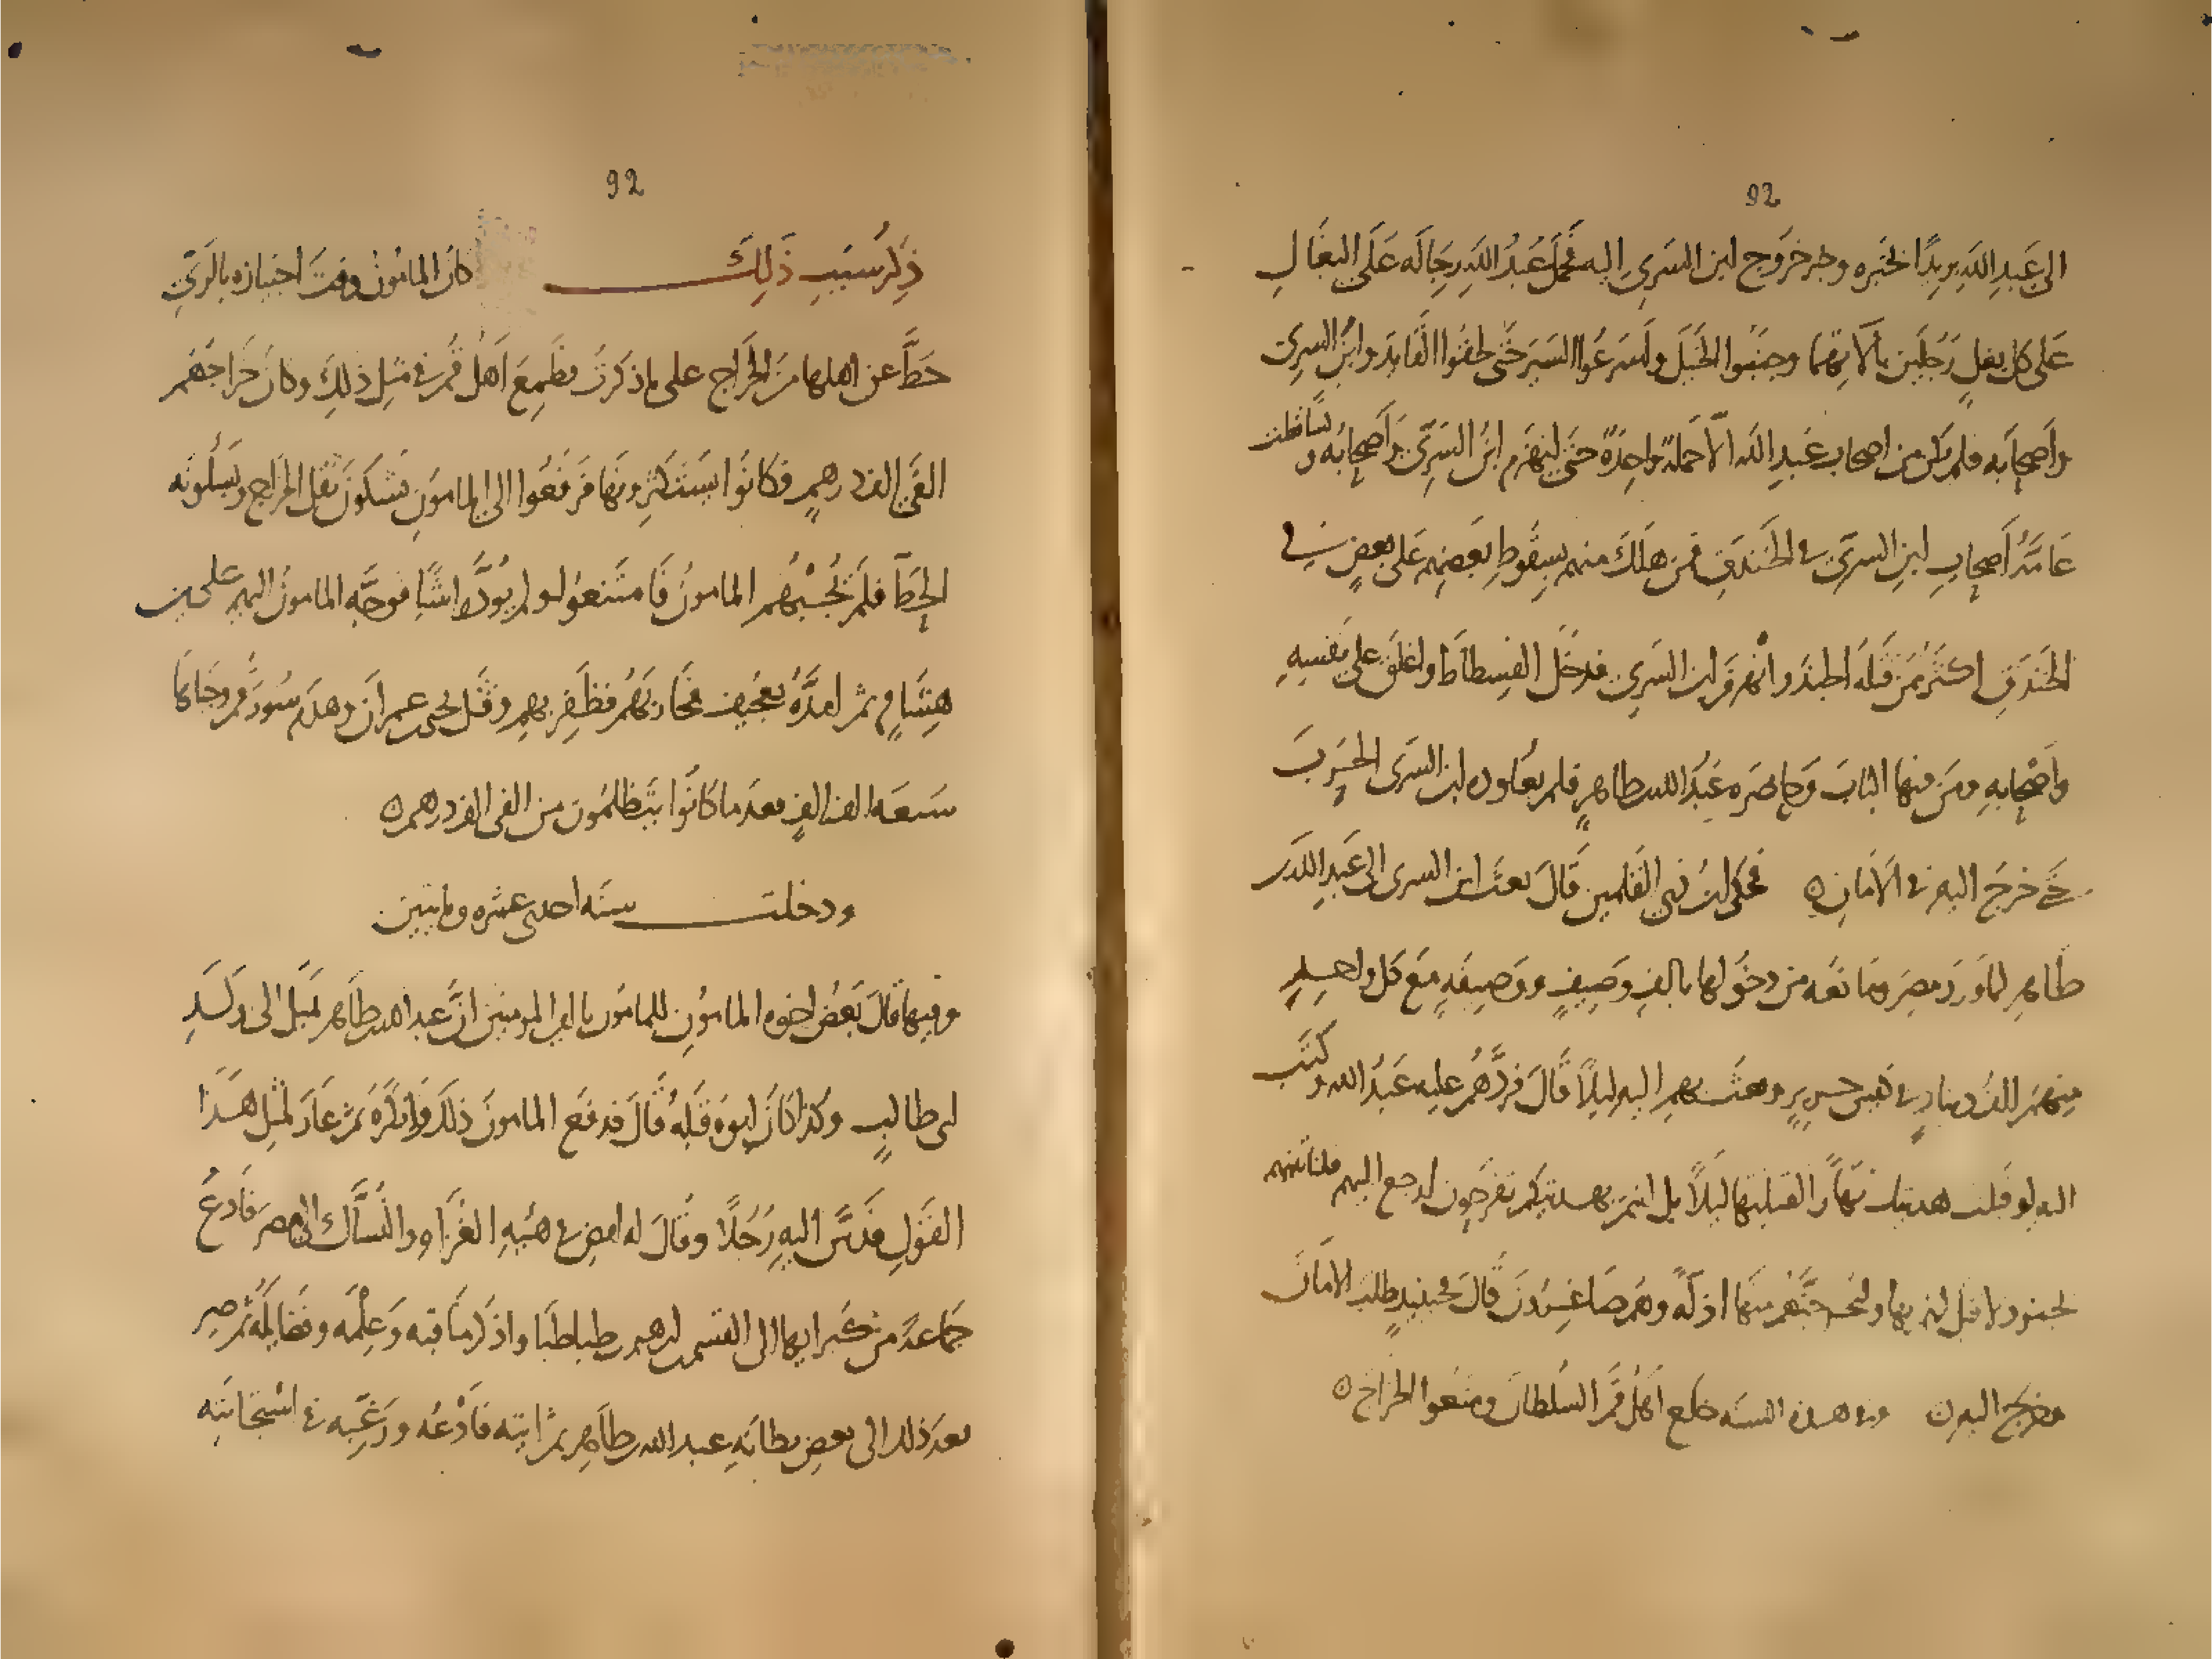 92
الى عَبدِ الله بريدًا بخبره وخبر خروج ابن السرى اليه فحمل عبدُ الله رجاله على البغال
على كل بغلٍ رَجُلَين بآلاتهما وجنبوا الخيل واسرعوا السير حتى لحقوا القايد وابن السرى
واصحابه فلم يكن من اصحاب عبد الله الّا حملة واحِدة حتى انهزم ابنُ السرىّ واصحابه وتساقطت
عامّة اصحاب ابن السرىّ فى الخندق فمن هلك منهم بسقوط بعضهم على بعضٍ فى
الخندق اكثر ممن قتله الجند وانهزم ابن السرى فدخل الفسطاط واغلق على نفسه
واصحابه ومن فيها الباب وحاصره عبد الله بن طاهر فلم يعاود ابن السرى الحرب
حتى خرج اليه فى الامان ه فحكى ابن ذى القلمين قال بعث ابن السرى الى عبد الله بن
طاهر لما ورد مصر ومانعه من دخولها بالف وصيفٍ ووصيفةٍ مع كل واحدٍ
منهم الف دينار فى كيس حريرٍ وبعث بهم اليه ليلًا قال فردّهم عليه عبدُ الله وكتب
اليه لو قبلت هديتك نهارًا لقبلتها ليلًا بل انتم بهديتكم تفرحون ارجع اليهم فلناتينهم
بجنود لا قبل لهم بها ولنخرجنّهم منها اذلّة وهم صاغرون قال فحينيذٍ طلب الامان
وخرج اليه ه وفى هذه السنه خلع اهل قم السلطان ومنعوا الخراج ه
92
ذكر سبب ذلك كان المامون وقت اجتيازه بالرىّ
حطّ عن اهلها من الخراج على ما ذكرت فطمع اهل قم فى مثل ذلك وكان خراجهم
الفى الف درهمٍ فكانوا يستكثرونها فرفعوا الى المامون يشكون ثقل الخراج ويسلونه
الحطّ فلم يُجبهم المامون فامتنعوا ولم يودّوا شيًا فوجّه المامون اليهم على بن
هشامٍ ثم امدّه بعجيف فحاربهم فظفر بهم وقتل يحيى بن عمران وهدم سور قم وجباها
سبعه الف الفٍ بعد ما كانوا يتظلمون من الفى الف درهم ه
ودخلت سنه احدى عشره ومايتين
وفيها قال بعض اخوه المامون للمامون يا امير المومنين انّ عبد الله بن طاهر يميل الى ولد
ابى طالبٍ وكذا كان ابوه قبله قال فدفع المامون ذلك وانكره ثم عاد لمثل هذا
القول فدسّ اليه رجلًا وقال له امض فى هيئه الغزاه والنسّاك الى مصر فادع
جماعة من كبرايها الى القسم بن ابرهيم بن طباطبا واذكر مناقبه وعلمه وفضايله ثم صر
بعد ذلك الى بعض بطانه عبد الله بن طاهر ثم ايته فادعه ورغّبه فى استجابته